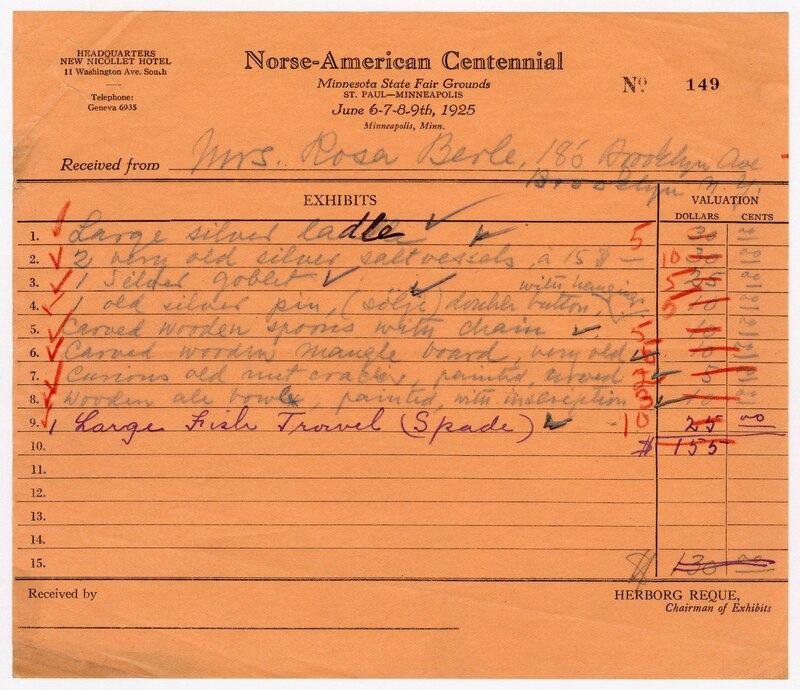 HEADQUARTERS
NEW NICOLLET HOTEL
11 Washington Ave. South
Telephone:
Geneva 6935
Norse-American Centennial
Minnesota State Fair Grounds
ST. PAUL—MINNEAPOLIS
June 6-7-8-9th, 1925
Minneapolis, Minn.
No 149
Received from Mrs. Rosa Berle, 186 Brooklyn Ave
Brooklyn N.Y.
EXHIBITS VALUATION
DOLLARS CENTS
1. Large silver ladle 5 30 00
2. 2 very old silver salt vessels, à 15 $ — 10 30 00
3. 1 Silver goblet 5 25 00
with hanging
4. 1 old silver pin, (sölje) double button, 5 10 00
5. Carved wooden spoons with chain 10 00
6. Carved wooden mangle board, very old 10 00
7. Curious old nut cracker, painted, carved 5 00
8. Wooden ale bowl, painted, with inscription 10 00
9. 1 Large Fish Trowel (Spade) 10 25 00
10. $ 155
11.
12.
13.
14.
15. $ 130 00
Received by
HERBORG REQUE,
Chairman of Exhibits